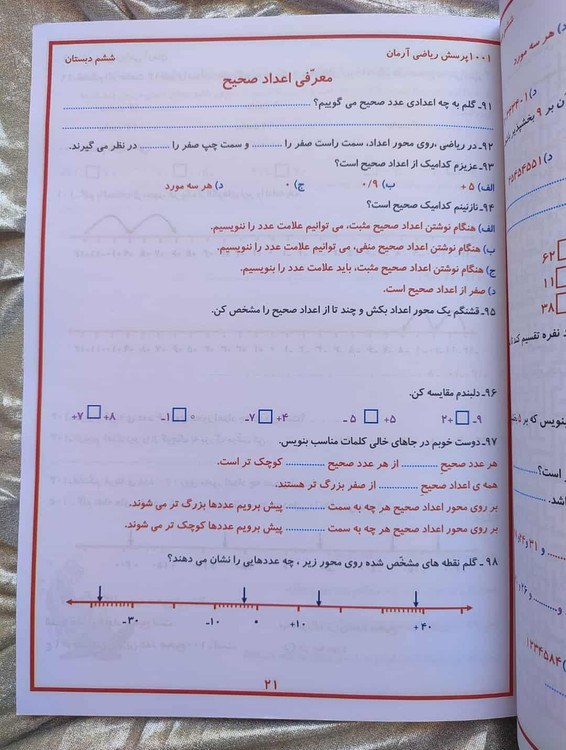 ۱۰۰۱ پرسش ریاضی آرمان
ششم دبستان
معرّفی اعداد صحیح
۹۱ـ گلم به چه اعدادی عدد صحیح می گوییم؟
۹۲ـ در ریاضی ،روی محور اعداد، سمت راست صفر را .......... و سمت چپ صفر را .......... در نظر می گیرند.
۹۳ـ عزیزم کدامیک از اعداد صحیح است؟
الف) ۵ + ب) ۰/۹ ج) ۰ د) هر سه مورد
۹۴ـ نازنینم کدامیک صحیح است؟
الف) هنگام نوشتن اعداد صحیح مثبت، می توانیم علامت عدد را ننویسیم.
ب) هنگام نوشتن اعداد صحیح منفی، می توانیم علامت عدد را ننویسیم.
ج) هنگام نوشتن اعداد صحیح مثبت، باید علامت عدد را بنویسیم.
د) صفر از اعداد صحیح است.
۹۵ـ قشنگم یک محور اعداد بکش و چند تا از اعداد صحیح را مشخص کن.
۹۶ـ دلبندم مقایسه کن.
+۷ □ +۸ -۱ □ ۰ -۷ □ +۴ -۵ □ +۵ +۲ □ -۹
۹۷ـ دوست خوبم در جاهای خالی کلمات مناسب بنویس.
هر عدد صحیح .......... از هر عدد صحیح .......... کوچک تر است.
همه ی اعداد صحیح .......... از صفر بزرگ تر هستند.
بر روی محور اعداد صحیح هر چه به سمت .......... پیش برویم عددها بزرگ تر می شوند.
بر روی محور اعداد صحیح هر چه به سمت .......... پیش برویم عددها کوچک تر می شوند.
۹۸ ـ گلم نقطه های مشخّص شده روی محور زیر ، چه عددهایی را نشان می دهند؟
-۳۰ -۱۰ ۰ +۱۰ +۴۰
۲۱
د) هر سه مورد
بر ۹ بخشپذیر
د) ۲۵۴۵۴۵۵۱
۶۲
۱۱
۳۸
نفره تقسیم کند
بنویس که بر ۵
ر است؟
اشد.
۱۲۳۴۵۸۴